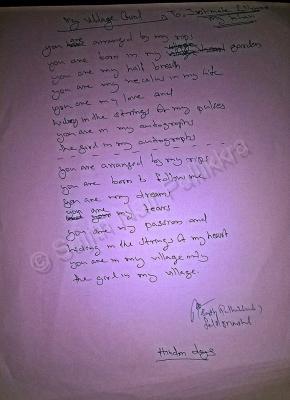 My Village Girl
you are arranged by my rips
you are born in my village garden
you are my half breath
you are my in my life
you are my love and
hiding in the strings of my pulses
you are in my autographs
the girl in my autographs
you are arranged by my rips
you are born to follow me
you are my dreams
you are my tears
you are my passion and
hiding in the strings of my heart
you are in my village only
the girl in my village.
days